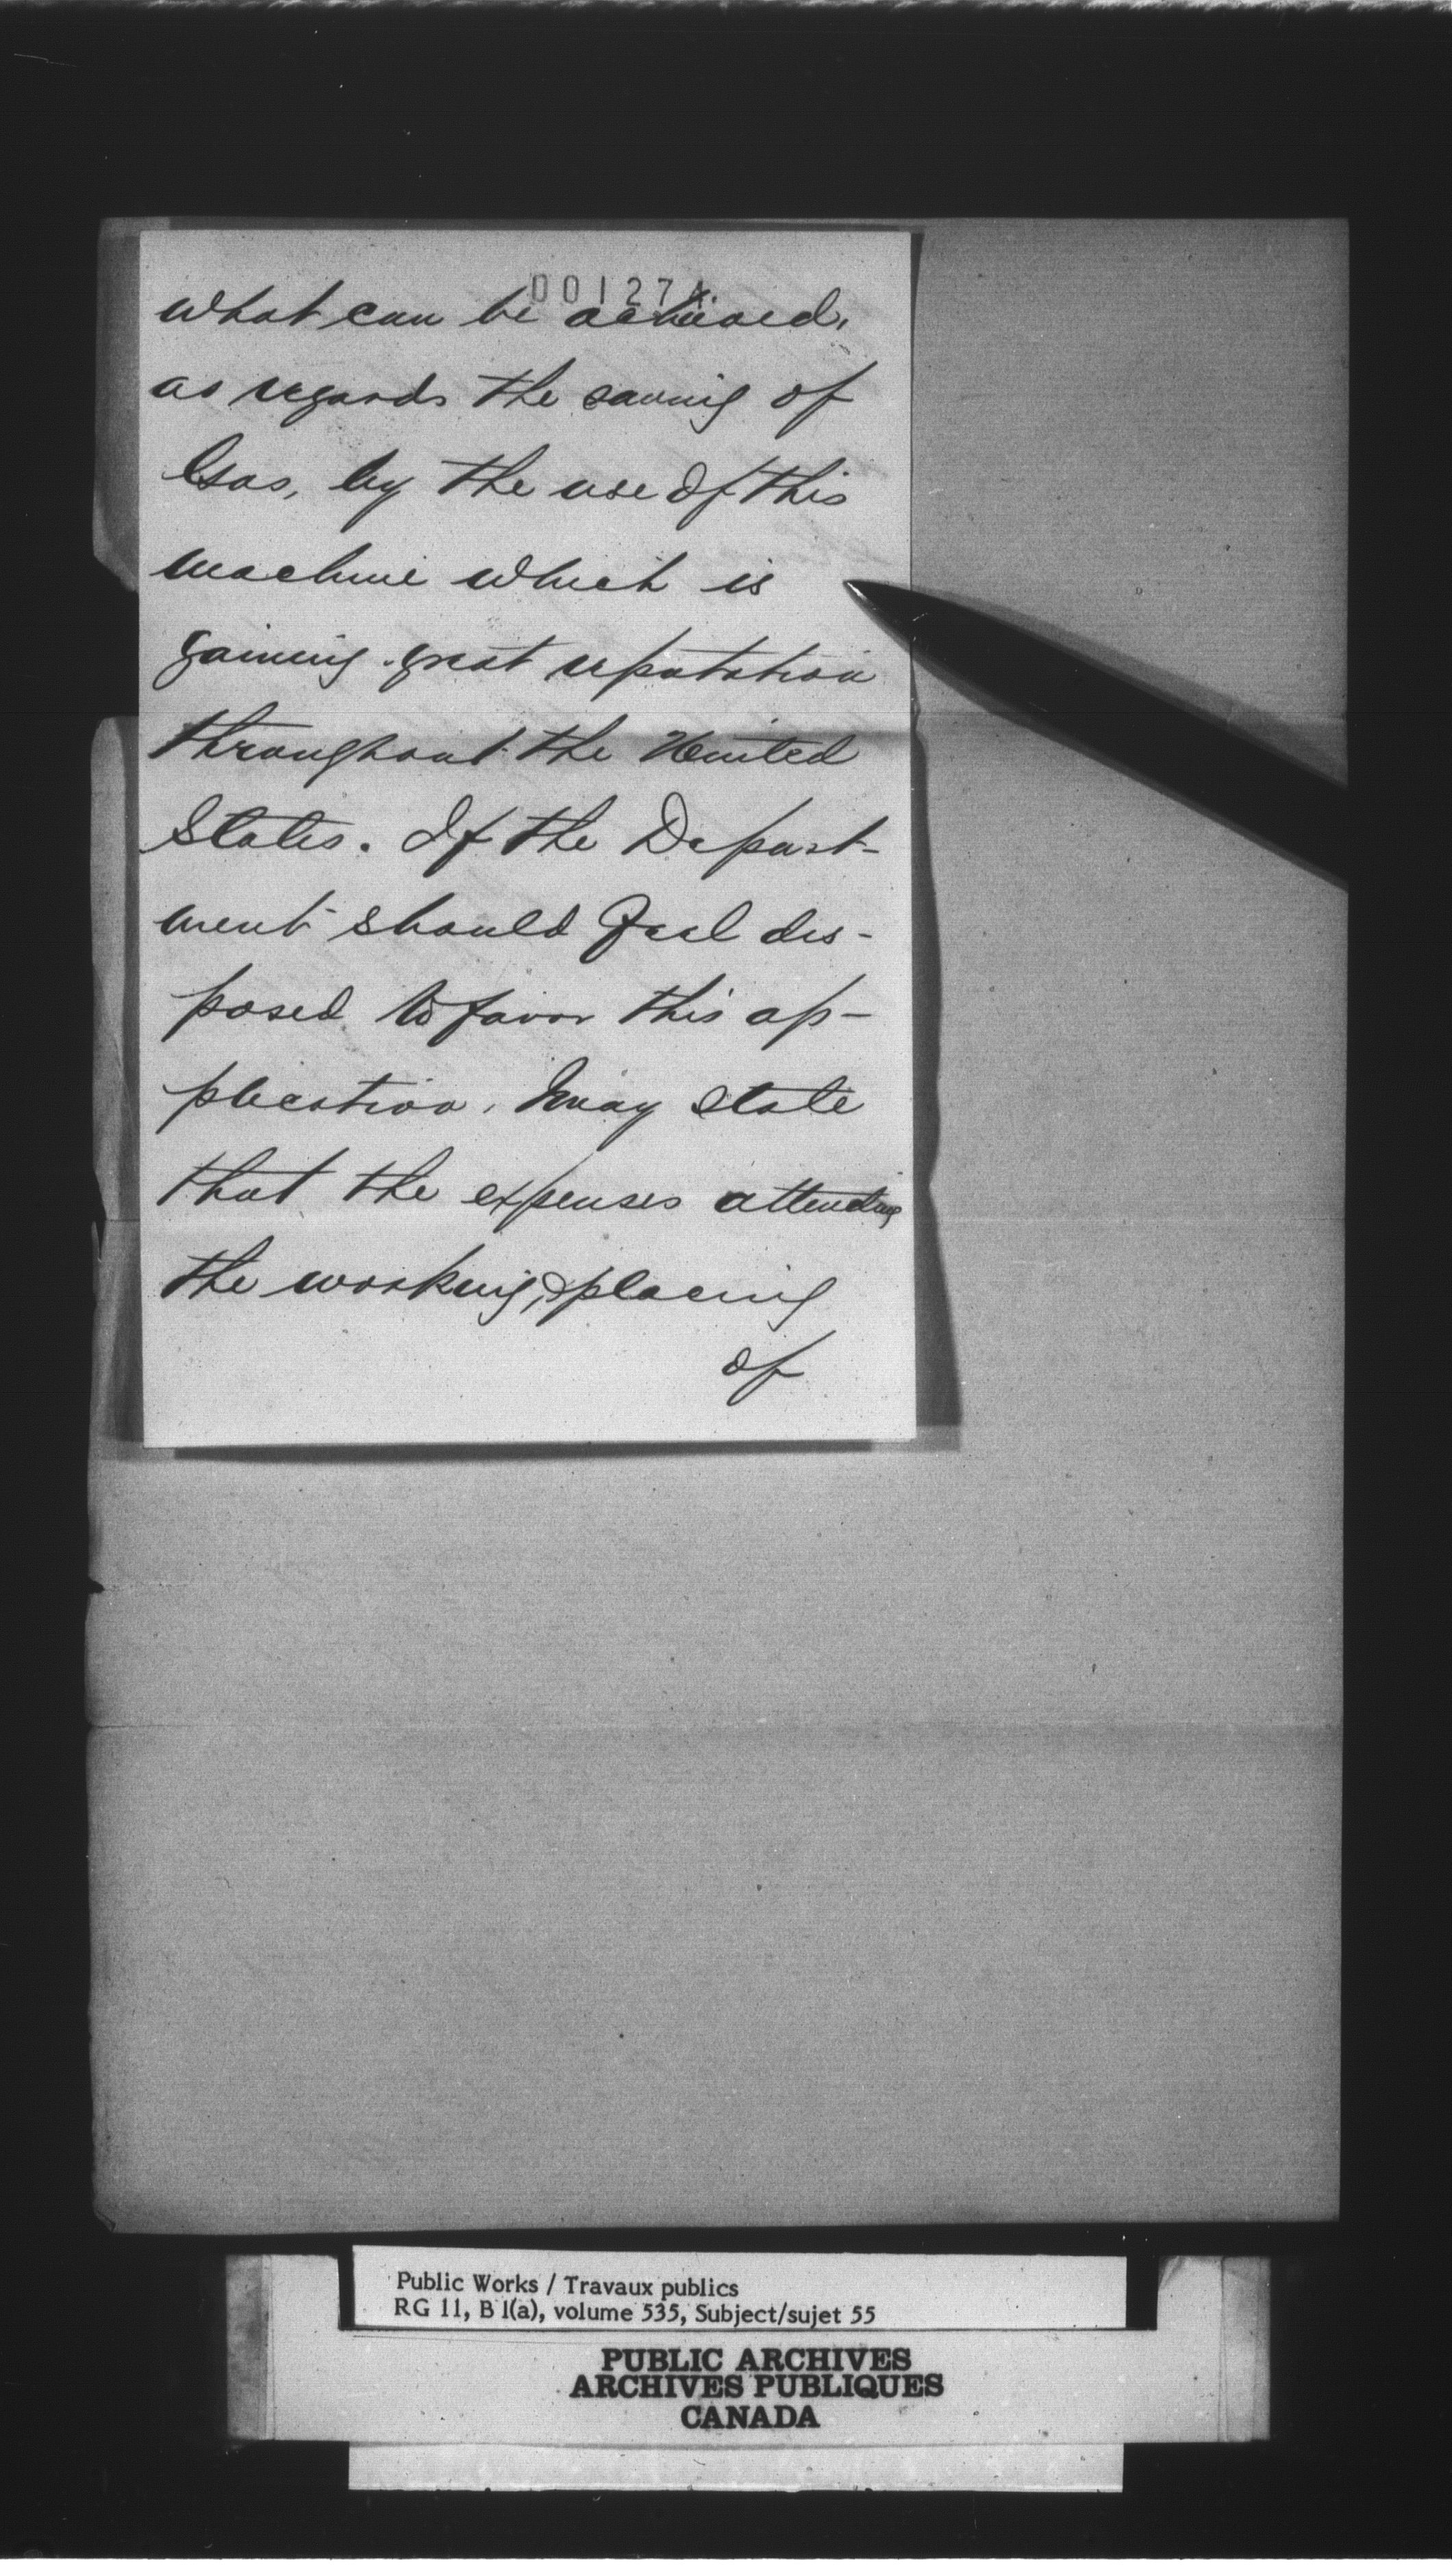 001274
what can be achieved,
as regards the saving of
Gas, by the use of this
machine which is
gaining great reputation
throughout the United
States. If the Depart-
ment should feel dis-
posed to favor this ap-
plication, may state
that the expenses attending
the working, & placing
of
Public Works / Travaux publics
RG 11, B 1(a), volume 535, Subject/sujet 55
PUBLIC ARCHIVES
ARCHIVES PUBLIQUES
CANADA